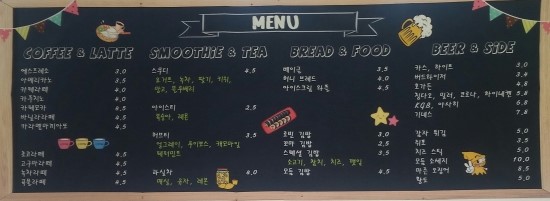 MENU
COFFEE & LATTE
에스프레소 3,0
아메리카노 3,0
카페라떼 4,0
카푸치노 4,0
카페모카 4,5
바닐라라떼 4,5
카라멜마끼아또 4,5
초코라떼 4,5
고구마라떼 4,5
녹차라떼 4,5
곡물라떼 4,5
SMOOTHIE & TEA
스무디 4,5
요거트, 녹차, 딸기, 키위,
망고, 블루베리
아이스티 2,5
복숭아, 레몬
허브티 3,5
얼그레이, 루이보스, 캐모마일
페퍼민트
과일차 4,5
매실, 유자, 레몬
BREAD & FOOD
베이글 3,5
허니 브레드 4,0
아이스크림 와플 4,5
로빈 김밥 3,0
꼬마 김밥 2,5
스페셜 김밥 3,5
소고기, 참치, 치즈, 멸치
모듬 김밥 4,5
BEER & SIDE
카스, 하이트 3,0
버드와이저 3,4
호가든 4,8
칭다오, 밀러, 코로나, 하이네켄 5,4
KGB, 아사히 6,8
기네스 7,8
감자 튀김 5,0
쥐포 3,5
치즈 스틱 5,0
모듬 소세지 10,0
마른 오징어 8,5
황도 5,0